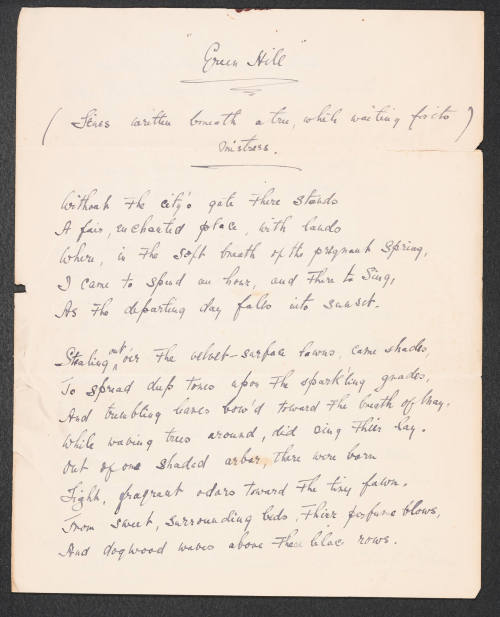 "Green Hill"
(Lines written beneath a tree, while waiting for its)
Mistress.
Without The city's gate There stands
A fair, enchanted place, with lands
Where, in The soft breath of the pregnant Spring,
I came to spend an hour, and There to Sing,
As The departing day falls into sunset.
Stealing out o'er The velvet-surface lawns, came shades,
To spread deep tones upon The spark'ling glades,
And trembling leaves bow'd toward The breath of May.
While waving trees around, did sing Thier lay.
Out of one shaded arbor, there were born
Light, fragrant odors toward The tiny fawn.
From sweet, surrounding beds, Thier perfume blows,
And dogwood waves above The lilac rows.